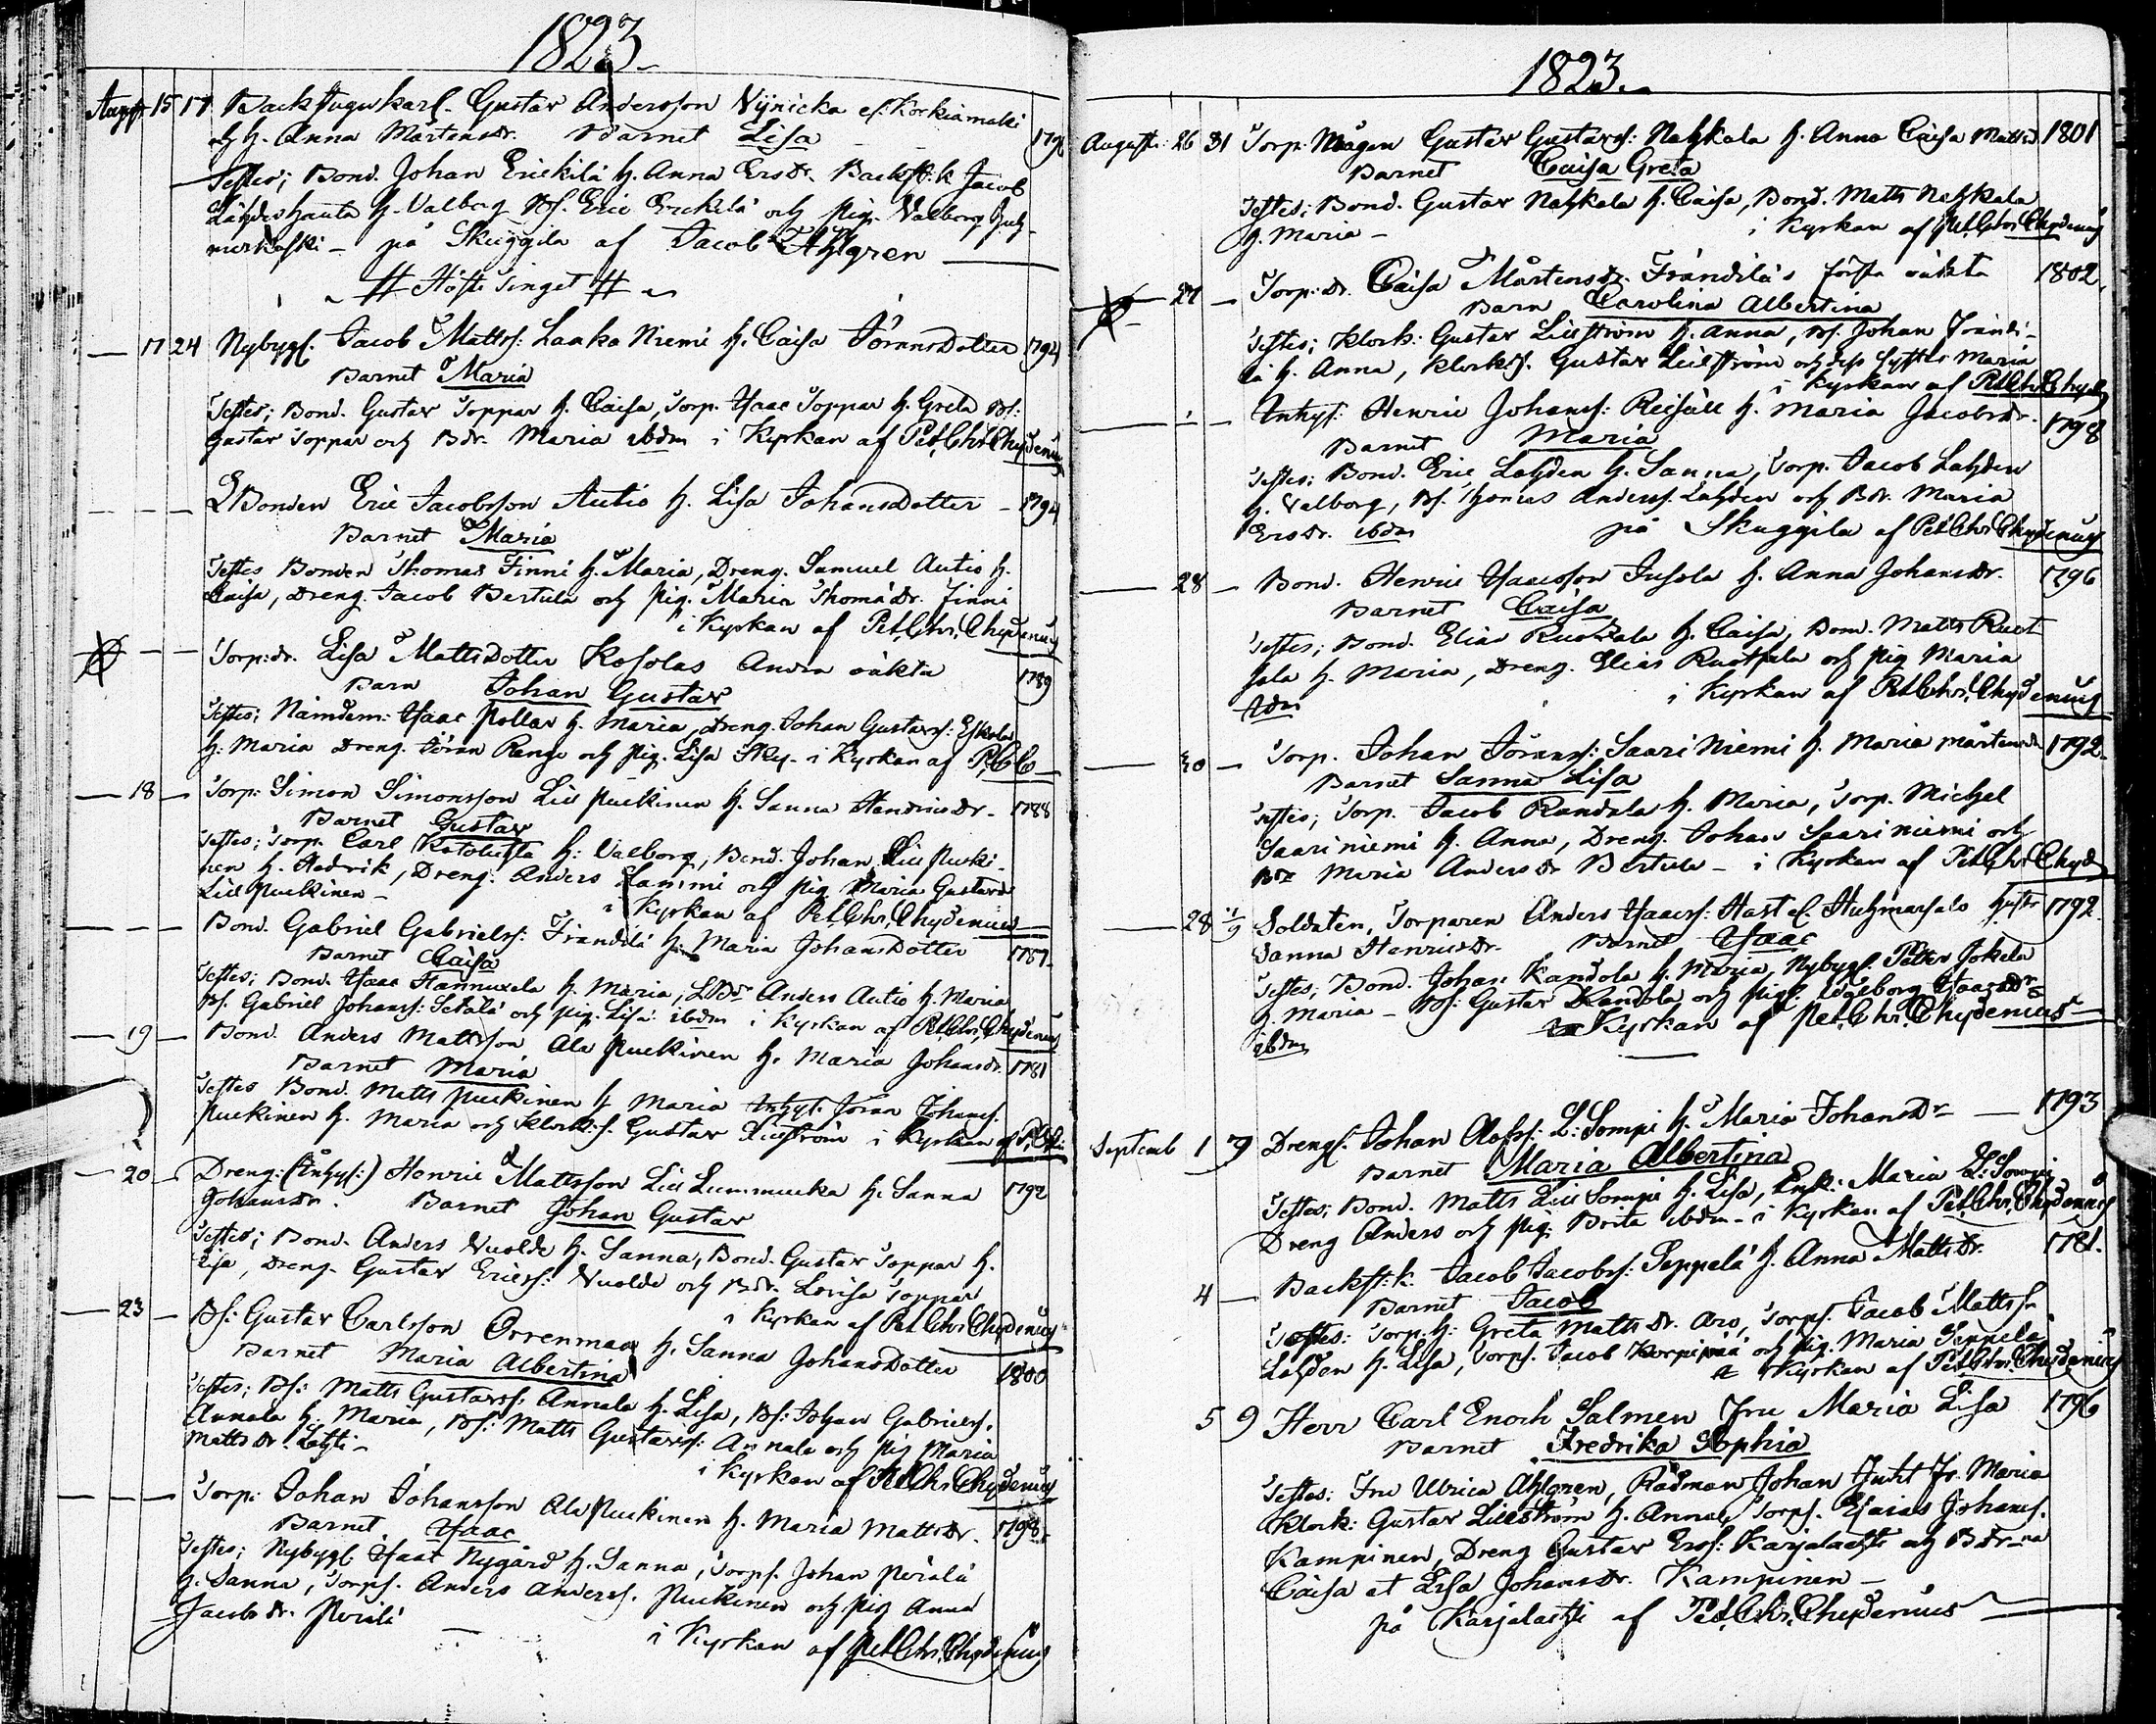 1823.
Augst. 15 17 Backstugukarl. Gustav Andersson Nynicka el. Korkiamaki
h. Anna Mårtensdr. Barnet Lisa 1796
Testes; Bond. Johan Erickilä h. Anna Ersdr. Backst:k Jacob
Lähdeshauta h. Valborg Bs. Eric Erickilä och pig. Valborg
på Skuggila af Jacob Ahlgren
# Höste Tinget #
17 24 Nybygg. Jacob Mattss: Laaka Niemi h. Caisa Jöransdotter 1794
Barnet Maria
Testes; Bond. Gustav Toppar h. Caisa, Torp. Isaac Toppar h. Greta Bs:
Gustav Toppar och Bdr. Maria ibdm i Kyrkan af Pet. Chr. Chydenius
LBonden Eric Jacobsson Autio h. Lisa Johansdotter - 1794
Barnet Maria
Testes Bonden Thomas Finni h. Maria, Dreng. Samuel Autio h.
Caisa, Dreng. Jacob Bertula och pig. Maria Thomädr. Finni
i Kyrkan af Pet. Chr. Chydenius
Torp:dr. Lisa Mattsdotter Kosolas Andra oäkta 1789
Barn Johan Gustav
Testes; Nämdem: Isaac Pollar h. Maria, Dreng. Johan Gustavs: Eskola
h: Maria Dreng. Jöran Range och pig. Lisa Sky - i Kyrkan af P.C.C.
18 Torp: Simon Simonsson Lill Puckinen h. Sanna Hendricsdr. 1788
Barnet Gustav
Testes; Torp. Carl h: Valborg, Bond. Johan Lill Pucki-
nen h. Hedvik, Dreng. Anders Lammi och pig Maria Gustavsdr
Lill Puckinen - i Kyrkan af Pet. Chr. Chydenius
Bond. Gabriel Gabrielss: Frändilä h: Maria Johansdotter 1787.
Barnet Caisa
Testes; Bond. Isaac Hannuxela h. Maria, LBdr Anders Autio h. Maria
Bs. Gabriel Johanss: Setälä och pig. Lisa ibdm i Kyrkan af Pet. Chr. Chydenius
19 Bond. Anders Mattsson Ala Puckinen h. Maria Johansdr. 1781
Barnet Maria
Testes Bond. Matts Puckinen h Maria Inhys. Jöran Johanss.
Puckinen h. Maria och Klock:s. Gustav Lillström i Kyrkan af P.C.C.
20 Dreng: (Inhys:) Henric Mattsson Lill Lummucka h. Sanna 1792
Johansdr. Barnet Johan Gustav
Testes; Bond. Anders Vuolde h. Sanna, Bond. Gustav Toppar h.
Lisa, Dreng. Gustav Ericss: Vuolde och Bdr. Lovisa Toppar
i Kyrkan af Pet. Chr. Chydenius
23 Bs: Gustav Carlsson Orrenmaa h. Sanna Johansdotter 1800
Barnet Maria Albertina
Testes; Bs: Matts Gustavss: Annala h. Lisa, Bs: Johan Gabrielss.
Annala h. Maria, Bs: Matts Gustavss: Annala och pig Maria
Mattsdr. Lahti - i Kyrkan af Pet. Chr. Chydenius
Torp: Johan Johansson Ala Puckinen h. Maria Mattsdr. 1798.
Barnet Isaac
Testes; Nybygg. Isaac Nygård h. Sanna, Torps. Johan Perälä
h. Sanna, Torps. Anders Anderss. Puckinen och pig Anna
Jacobsdr. Perälä
i Kyrkan af Pet. Chr. Chydenius
1823.
Augusti. 26 31 Torp. Mågen Gustav Gustavs: Nahkala h. Anna Caisa Mattsd. 1801
Barnet Caisa Greta
Testes; Bond. Gustav Nahkala h. Caisa, Bond. Matts Nahkala
h. Maria - i Kyrkan af Pet. Chr. Chydenius
27 Torp:dr. Caisa Mårtensdr. Frändilä's första oäkta 1802.
Barn Carolina Albertina
Testes; Klock: Gustav Lillström h. Anna, Bs. Johan Frändi-
lä h. Anna, Klock:s. Gustav Lillström och dess syster Maria
i Kyrkan af Pet. Chr. Chyd
Inhys: Henric Johanss: Reisäll h. Maria Jacobsdr. 1798
Barnet Maria
Testes; Bond. Eric Lahden h. Sanna, Torp. Jacob Lahden
h. Valborg, Bs. Thomas Anderss. Lahden och Bdr. Maria
Ersdr. ibdm på Skuggila af Pet. Chr. Chydenius
28 Bond. Henric Isaacsson Jussola h. Anna Johansdr. 1796
Barnet Caisa
Testes; Bond. Elias Ruotsala h. Caisa, Bond. Matts Ruot
sala h. Maria, Dreng. Elias Ruotsala och pig Maria
ibdm i Kyrkan af Pet. Chr. Chydenius
30 Torp. Johan Jöranss: Saari Niemi h. Maria Mårtensdr 1792.
Barnet Sanna Lisa
Testes; Torp. Jacob Randala h. Maria, Torp. Michel
Saari niemi h. Anna, Dreng. Johan Saari niemi och
Bdr Maria Andersdr Bertula - i Kyrkan af Pet. Chr. Chyd
28 Soldaten, Torparen Anders Isaacss: Hast el. Huhmarsalo hustr 1792.
Sanna Henricsdr. Barnet Isaac
Testes; Bond. Johan Kandola h. Maria, Nybygg. Petter Jokela
h. Maria - Bs: Gustav Kandola och pig: Walborg Isaacsdr
ibdm Kyrkan af Pet. Chr. Chydenius
Septemb 1 7 Drengs. Johan Olofss: L: Sompi h. Maria Johansdr 1793
Barnet Maria Albertina
Testes; Bond. Matts Lill Sompi h. Lisa, Enk: Maria L: Sompi
Dreng Anders och pig. Brita ibdm - i Kyrkan af Pet. Chr. Chydenius
4 Backst:k. Jacob Jacobss: Seppelä h. Anna Mattsdr. 1781.
Barnet Jacob
Testes: Torp. h: Greta Mattsdr. Aro, Torps. Jacob Mattss.
Lahden h. Lisa, Torps. Jacob Korpipää och pig. Maria Seppelä
Kyrkan af Pet. Chr. Chydenius
5 9 Herr Carl Enoch Salmen Fru Maria Lisa 1796
Barnet Fredrika Sophia
Testes: Fru Ulrica Ahlgren, Rådman Johan Fr. Maria
Klock: Gustav Lillström h. Anna, Torps. Esaias Johanss.
Kampinen, Dreng Gustav Erss: Karjalachti och Bdr-na
Caisa et Lisa Johansdr. Kampinen -
på Karjalachti af Pet. Chr. Chydenius